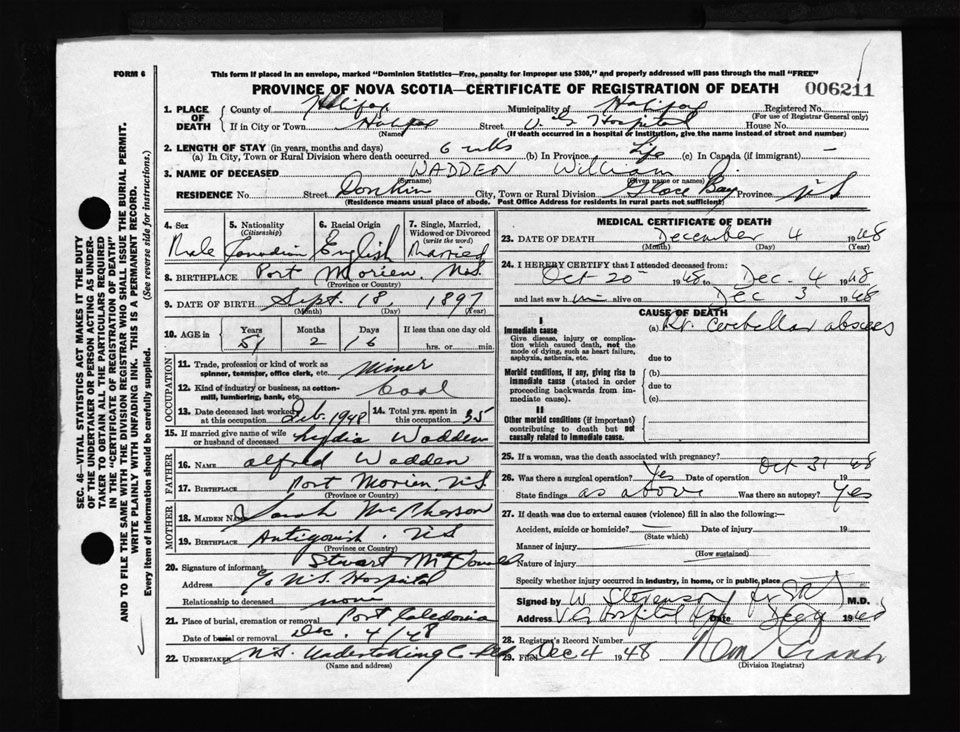 FORM 6
This form if placed in an envelope, marked "Dominion Statistics—Free, penalty for improper use $300," and properly addressed will pass through the mail "FREE"
PROVINCE OF NOVA SCOTIA—CERTIFICATE OF REGISTRATION OF DEATH 006211
1. PLACE OF DEATH County of Halifax Municipality of Halifax Registered No.
(For use of Registrar General only)
If in City or Town Halifax Street Hospital House No.
(Name) (If death occurred in a hospital or institution, give the name instead of street and number)
2. LENGTH OF STAY (in years, months and days)
(a) In City, Town or Rural Division where death occurred 6 wks (b) In Province Life (c) In Canada (if immigrant) —
3. NAME OF DECEASED WADDEN William
(Surname) (Given name or names)
RESIDENCE No. Street Donkin City, Town or Rural Division Glace Bay Province N.S.
(Residence means usual place of abode. Post Office Address for residents in rural parts not sufficient)
4. Sex Male
5. Nationality (Citizenship) Canadian
6. Racial Origin English
7. Single, Married, Widowed or Divorced (write the word) Married
8. BIRTHPLACE Port Morien, N.S.
(Province or Country)
9. DATE OF BIRTH Sept. 18, 1897
(Month) (Day) (Year)
10. AGE in Years 51 Months 2 Days 16 If less than one day old hrs. or min.
OCCUPATION
11. Trade, profession or kind of work as spinner, teamster, office clerk, etc. Miner
12. Kind of industry or business, as cotton-mill, lumbering, bank, etc. Coal
13. Date deceased last worked at this occupation Feb. 1948 14. Total yrs. spent in this occupation 35
15. If married give name of wife or husband of deceased Lydia Wadden
FATHER
16. NAME Alfred Wadden
17. BIRTHPLACE Port Morien N.S.
(Province or Country)
MOTHER
18. MAIDEN NAME Sarah McPherson
19. BIRTHPLACE Antigonish. N.S.
(Province or Country)
20. Signature of informant Stuart
Address c/o N.S. Hospital
Relationship to deceased none
21. Place of burial, cremation or removal Port Caledonia
Date of burial or removal Dec. 4/48
22. UNDERTAKER N.S. Undertaking Co Ltd
(Name and address)
MEDICAL CERTIFICATE OF DEATH
23. DATE OF DEATH December 4 1948
(Month) (Day) (Year)
24. I HEREBY CERTIFY that I attended deceased from:
Oct 20 1948 to Dec. 4 1948
and last saw him alive on Dec 3 1948
CAUSE OF DEATH
I
Immediate cause (a) Rt. Cerebellar abscess
Give disease, injury or complication which caused death, not the mode of dying, such as heart failure, asphyxia, asthenia, etc.
due to
Morbid conditions, if any, giving rise to immediate cause (stated in order proceeding backwards from immediate cause).
(b)
due to
(c)
II
Other morbid conditions (if important) contributing to death but not causally related to immediate cause.
25. If a woman, was the death associated with pregnancy?
26. Was there a surgical operation? Yes Date of operation Oct 31 1948
State findings as above Was there an autopsy? Yes
27. If death was due to external causes (violence) fill in also the following:—
Accident, suicide or homicide? — Date of injury 19
(State which)
Manner of injury
(How sustained)
Nature of injury
Specify whether injury occurred in industry, in home, or in public place
Signed by W. Stevenson M.D.
Address Hospital Date Dec 1948
28. Registrar's Record Number
29. Filed Dec 4 1948
(Division Registrar)
SEC. 46—VITAL STATISTICS ACT MAKES IT THE DUTY
OF THE UNDERTAKER OR PERSON ACTING AS UNDER-
TAKER TO OBTAIN ALL THE PARTICULARS REQUIRED
IN THE "CERTIFICATE OF REGISTRATION OF DEATH"
AND TO FILE THE SAME WITH THE DIVISION REGISTRAR WHO SHALL ISSUE THE BURIAL PERMIT.
WRITE PLAINLY WITH UNFADING INK. THIS IS A PERMANENT RECORD.
Every item of information should be carefully supplied. (See reverse side for instructions.)